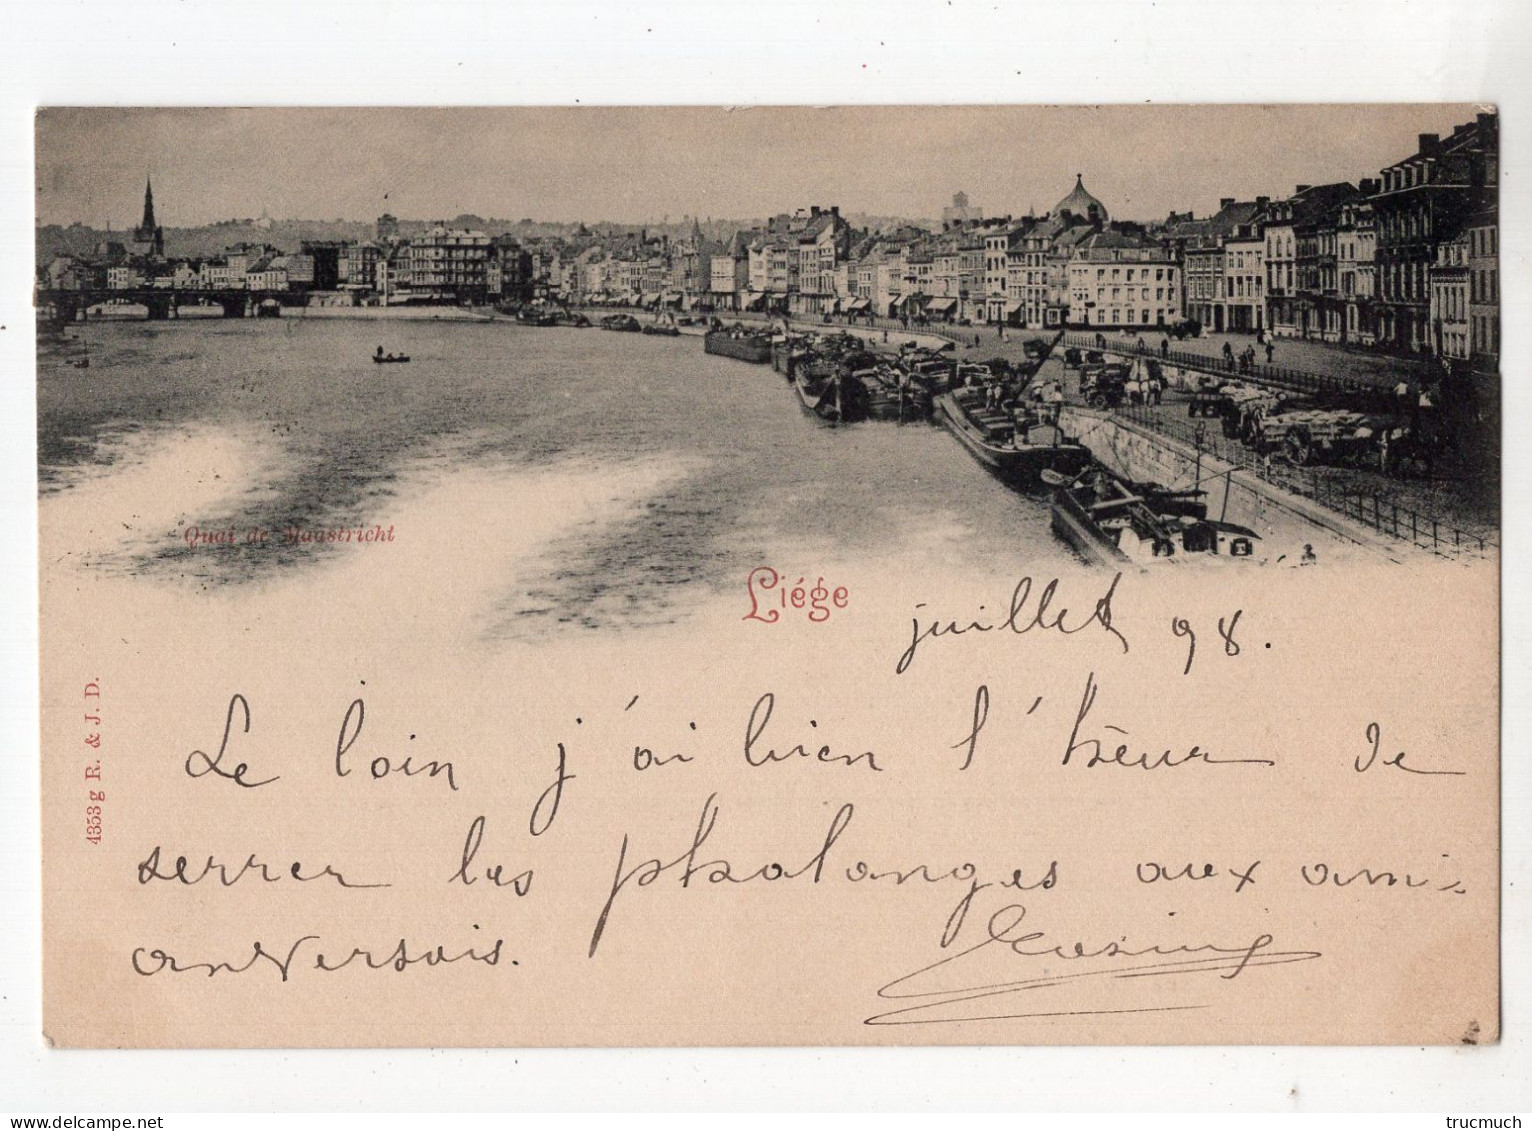 Quai de Maastricht
Liége
juillet 98.
4353g R. & J. D.
De loin j'ai bien l'heur de
serrer les phalanges aux amis
anversois.
delcampe.net
trucmuch